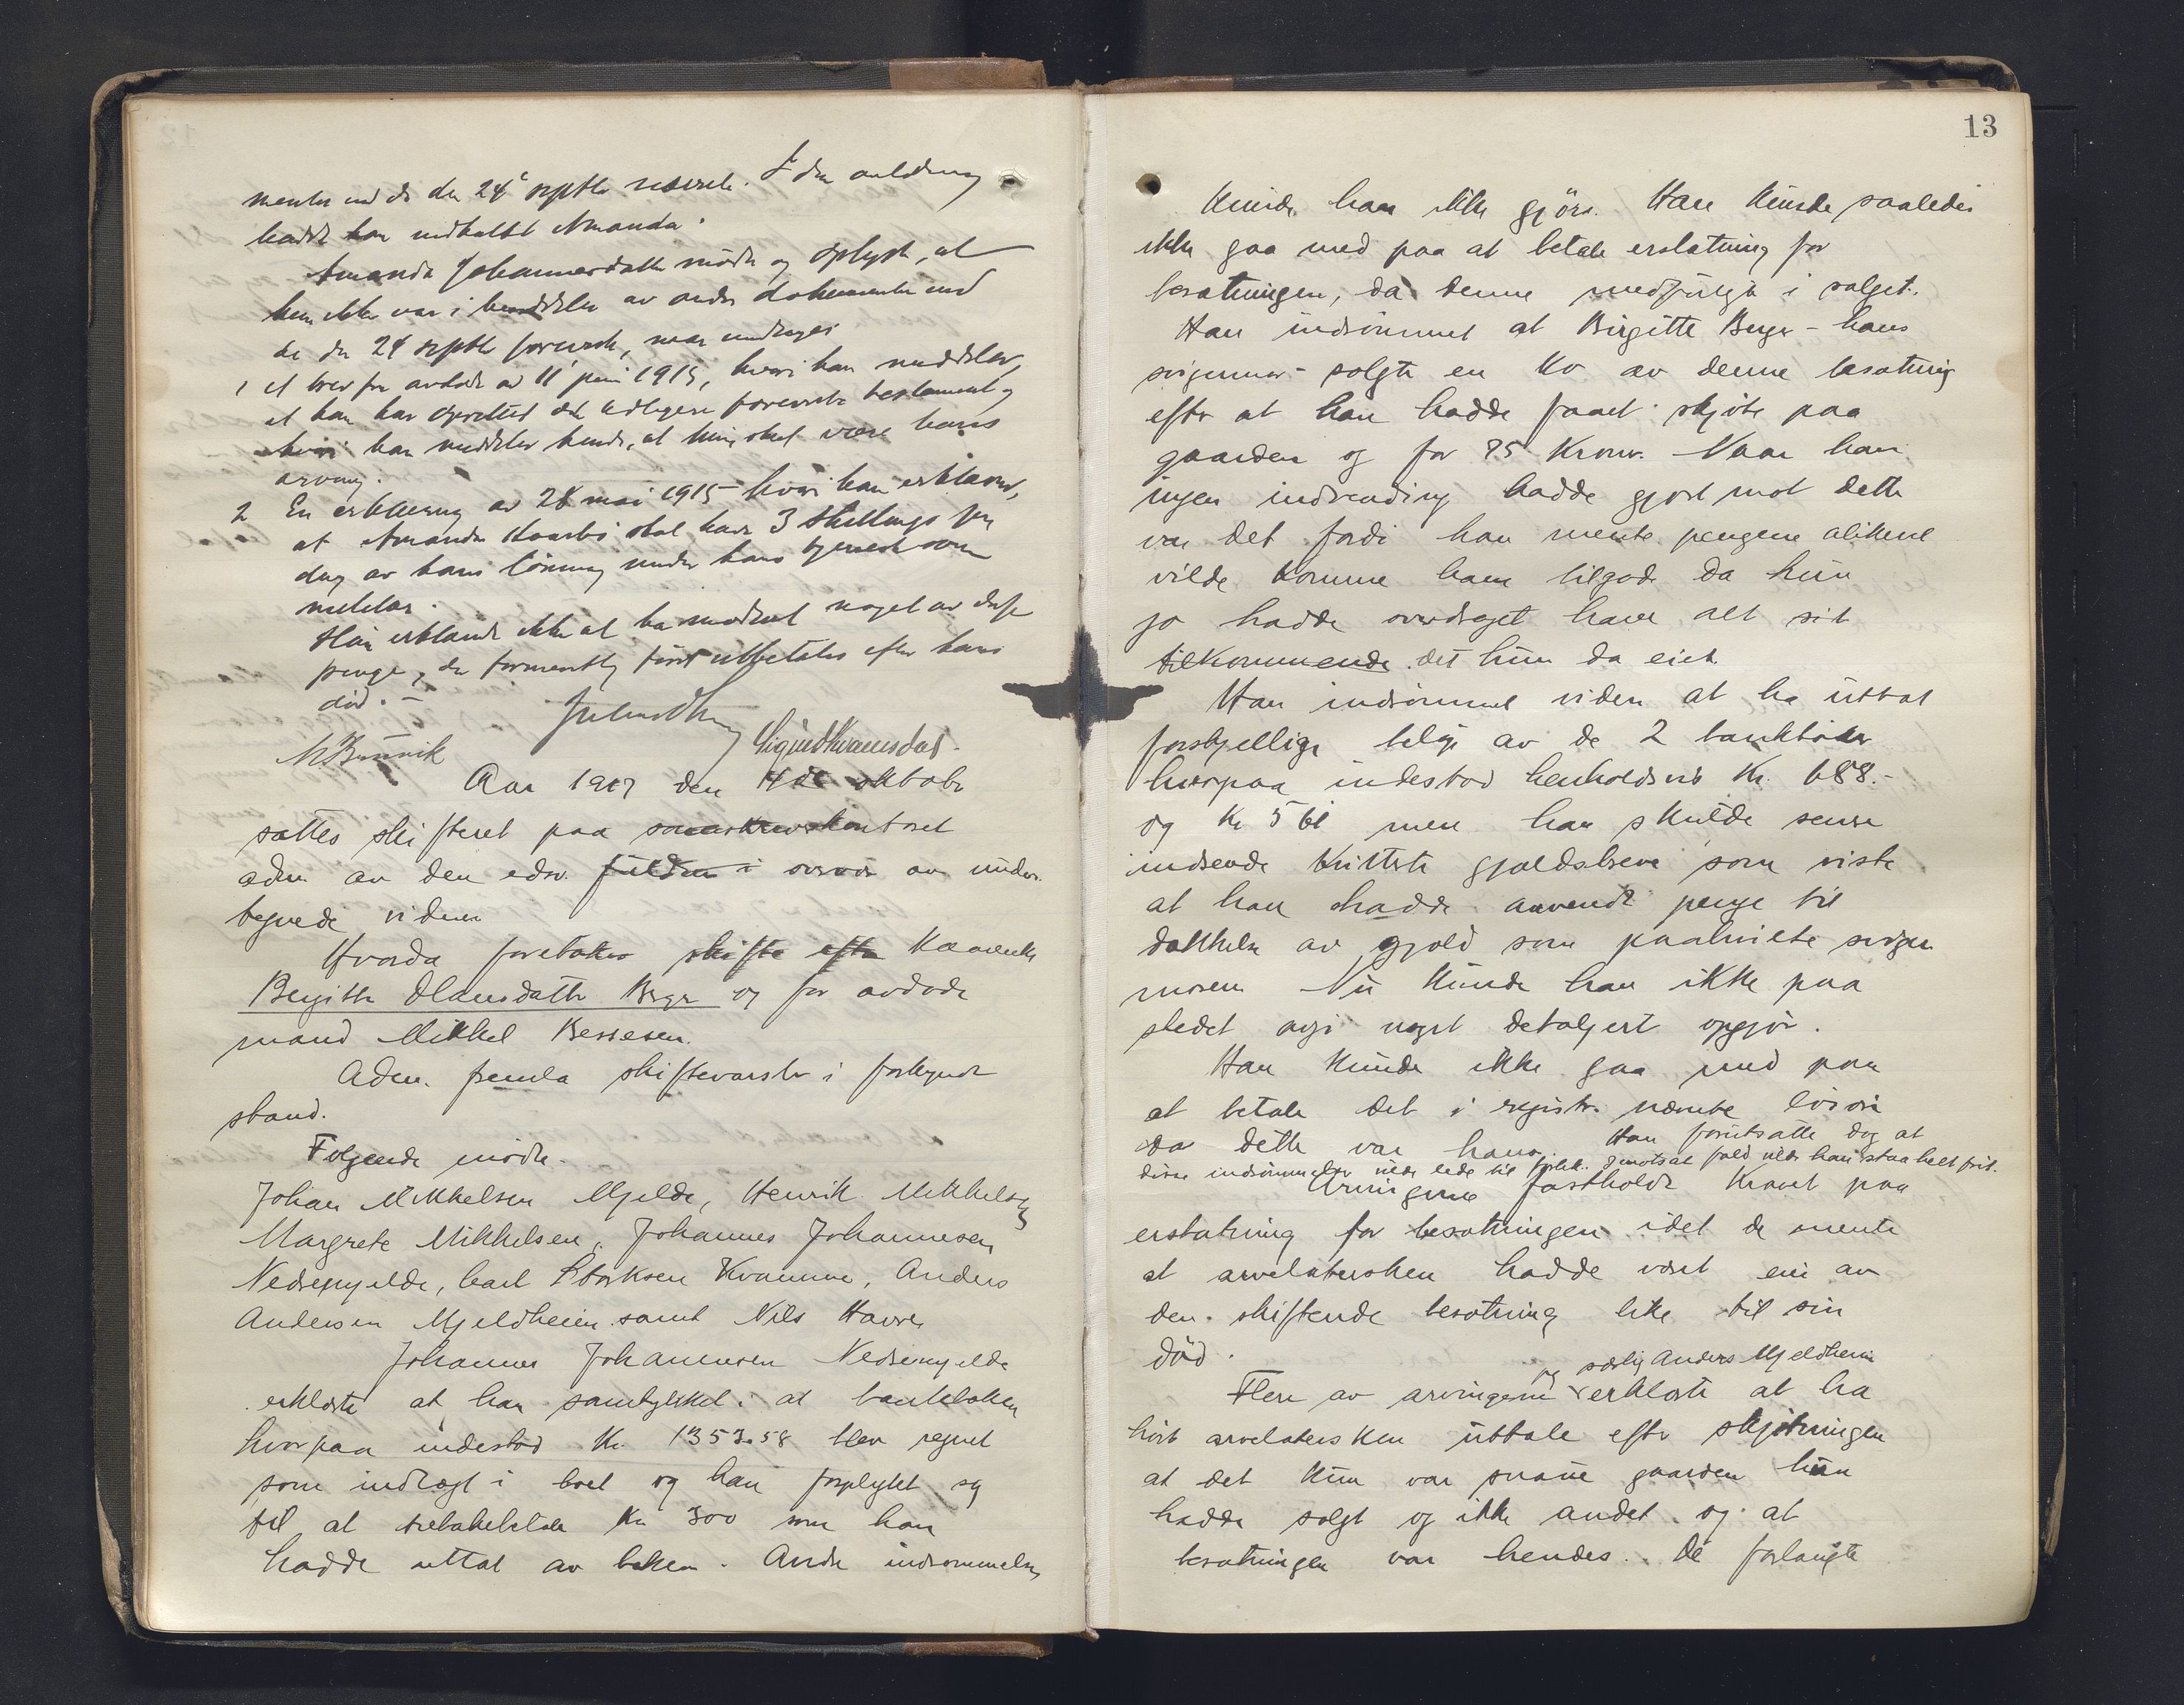 menter end de den 24' septbr I den anledning
hadde han indkaldt Amanda.
Amanda Johannesdatter mødte og oplyste, at
hun ikke var i besiddelse av andre dokumenter end
de den 24 septbr foreviste, naar undtages
1 et brev fra avdøde av 11' juni 1915, hvori han meddeler,
at han har oprettet det tidligere foreviste testament og
hvori han meddeler hende, at hun skal være hans
arving.
2 En erklæring av 28 mai 1915 hvori han erklærer,
at Amanda skal have 3 Skillings pr
dag av hans lønning under hans tjeneste som
militær.
Hun erklærte ikke at ha mottat noget av disse
penge, der formentlig først utbetales efter hans
død. –
Sigurd Kvamsdal.
Aar 1917 den 4de oktober
sattes skifteret paa sorenskriverkontoret
adm. av den edsv. fuldm i overvær av under-
tegnede vidner
Hvorda foretokes skifte efter Kaarenke
Birgitte Hansdatter Berge og før avdøde
mand Mikkel Bessesen.
Adm. fremla skiftevarsler i forkyndt
stand.
Følgende mødte.
Johan Mikkelsen Mjelde, Henrik Mikkelsen
Margrete Mikkelsen, Johannes Johannesen
Nedremjelde, Carl Storksen Kvamme, Anders
Andersen Mjeldheim samt Nils Havre
Johannes Johannesen Nedremjelde
erklærte at han samtykket i at bankboken
hvorpaa indestod Kr. 1353.58 blev regnet
som indlagt i boet og han forpligtet sig
til at tilbakebetale Kr 300 som han
hadde uttat av boken. Andre indrømmelser
13
Kunde han ikke gjøre. Han kunde saaledes
ikke gaa med paa at betale erstatning for
besætningen, da denne medfulgte i salget.
Han indrømmet at Birgitte Berge – hans
svigermor – solgte en ko av denne besætning
efter at han hadde faaet skjøte paa
gaarden og for 85 Kroner. Naar han
ingen indvending hadde gjort mot dette
var det fordi han mente pengene allikevel
vilde komme ham tilgode da hun
jo hadde overdraget ham alt sit
tilkommende det hun da eiet
Han indrømmet videre at ha uttat
forskjellige beløp av de 2 bankbøker
hvorpaa indestod henholdsvis Kr. 688.-
og Kr 561 men han skulde senere
indsende kvitterte gjældsbreve som viste
at han hadde anvendt penge til
dækkelse av gjæld som paahvilte sviger
moren Nu kunde han ikke paa
stedet avgi noget detaljert opgjør.
Han kunde ikke gaa med paa
at betale det i registr. nævnte løsøre
da dette var hans. Han forutsatte dog at
disse indrømmelser vilde lede til forlik. I motsat fald vilde han staa helt frit.
Arvingerne fastholdt kravet paa
erstatning for besætningen idet de mente
at arvelatersken hadde vært eier av
den skiftende besætning like til sin
død.
og særlig Anders Mjeldheim
Flere av arvingerne erklærte at ha
hørt arvelatersken uttale efter skjøtningen
at det kun var snaue gaarden hun
hadde solgt og ikke andet og at
besætningen var hendes. De forlangte